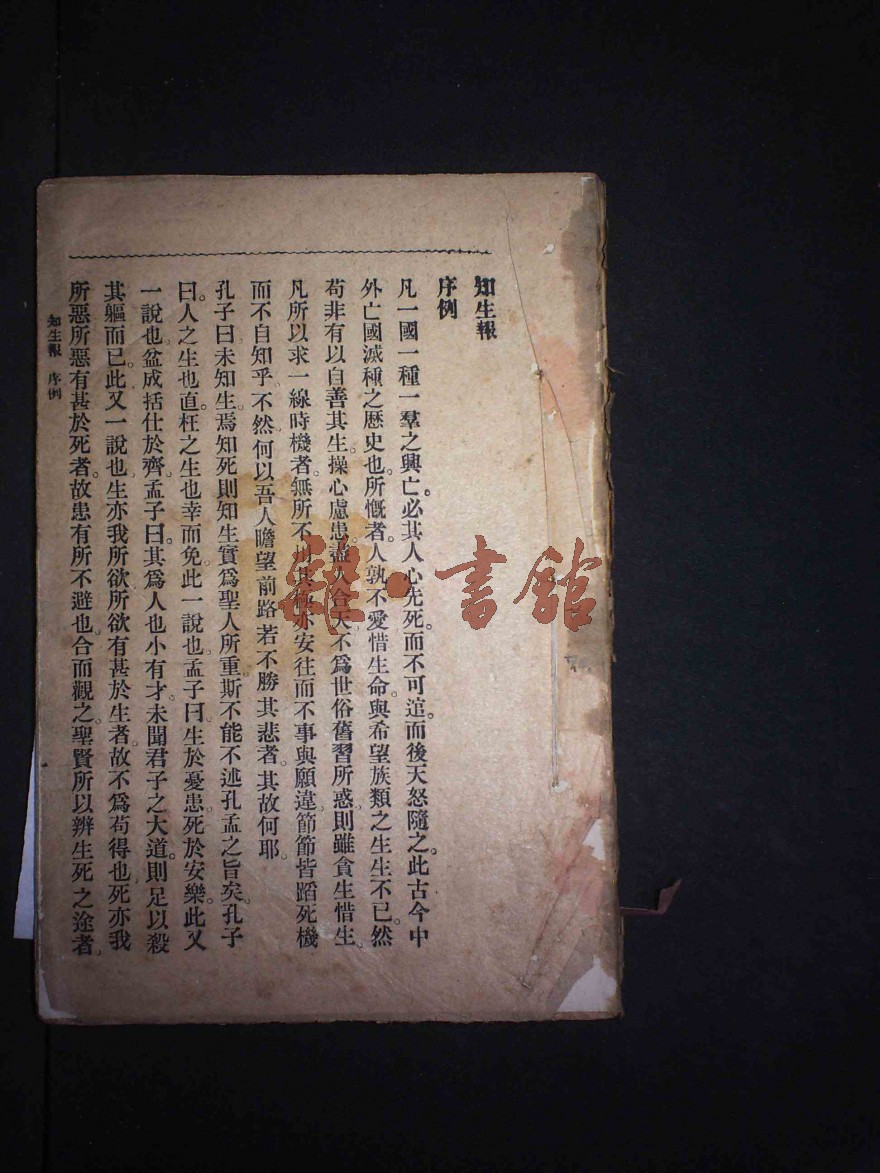 知生報
序例
凡一國一種一羣之興亡。必其人心先死。而不可逭。而後天怒隨之。此古今中
外亡國滅種之歷史也。所慨者。人孰不愛惜生命。與希望族類之生生不已。然
苟非有以自善其生。操心慮患。盡人合天。不爲世俗舊習所惑。則雖貪生惜生。
凡所以求一線時機者。無所不用其極。亦安往而不事與願違。節節皆蹈死機
而不自知乎。不然。何以吾人瞻望前路。若不勝其悲者。其故何耶。
孔子曰。未知生。焉知死。則知生實爲聖人所重。斯不能不述孔孟之旨矣。孔子
曰。人之生也直。枉之生也幸而免。此一說也。孟子曰。生於憂患。死於安樂。此又
一說也。盆成括仕於齊。孟子曰。其爲人也小有才。未聞君子之大道。則足以殺
其軀而已。此又一說也。生亦我所欲。所欲有甚於生者。故不爲苟得也。死亦我
所惡。所惡有甚於死者。故患有所不避也。合而觀之。聖賢所以辨生死之途者。
知生報 序例
雜·書館